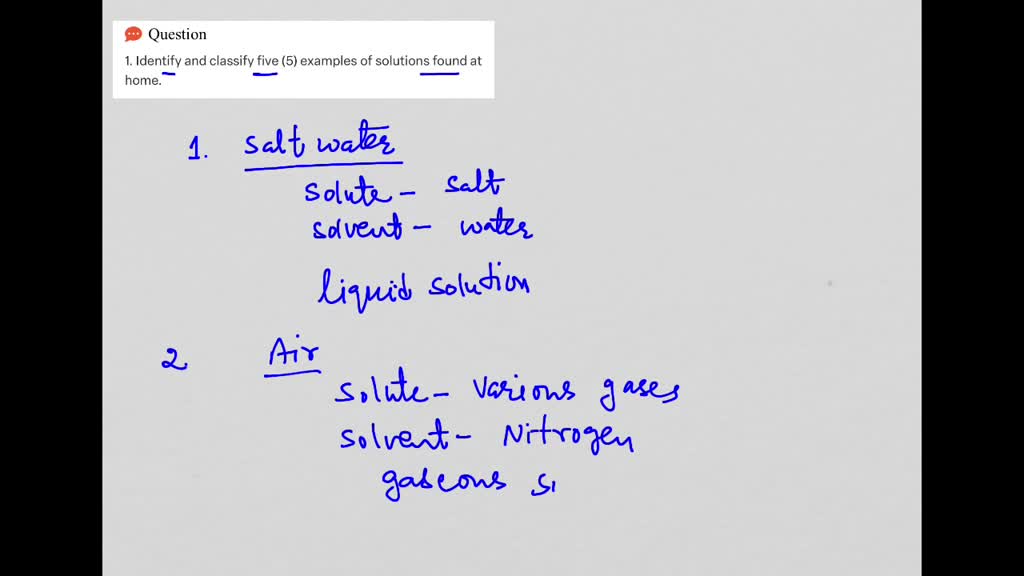 Question
1. Identify and classify five (5) examples of solutions found at
home.
1. Salt water
Solute - Salt
Solvent - water
liquid solution
2 Air
Solute - Various gases
Solvent - Nitrogen
gaseous s